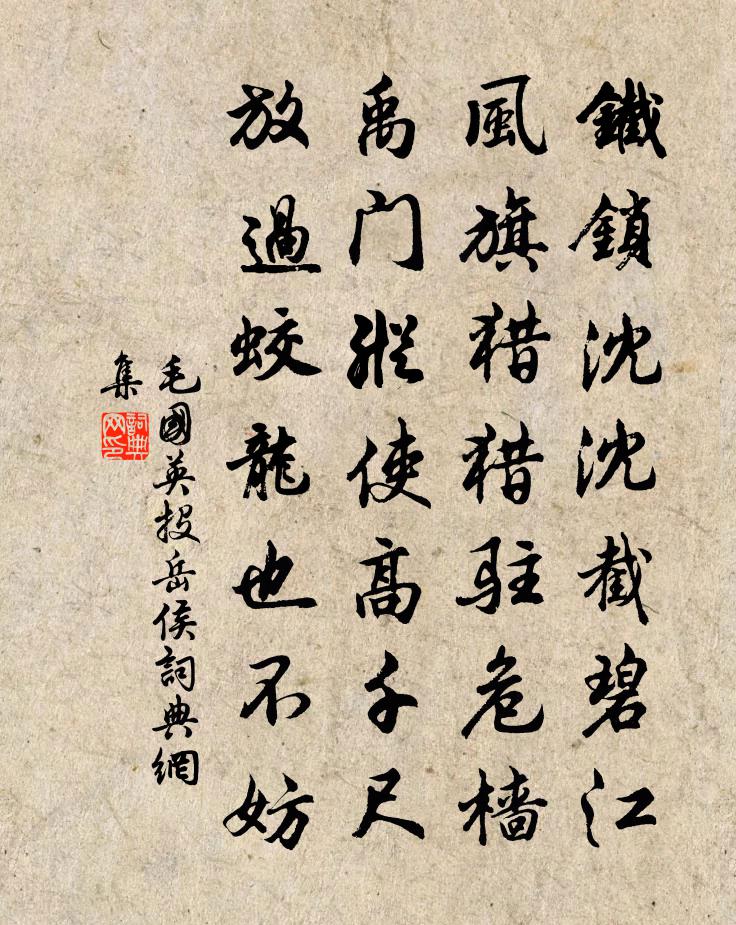 鐵鎖沈沈截碧江
風旗猎猎駐危檣
禹门縱使高千尺
放過蛟龍也不妨
毛國英投岳侯詞典網
集
詞典
网印